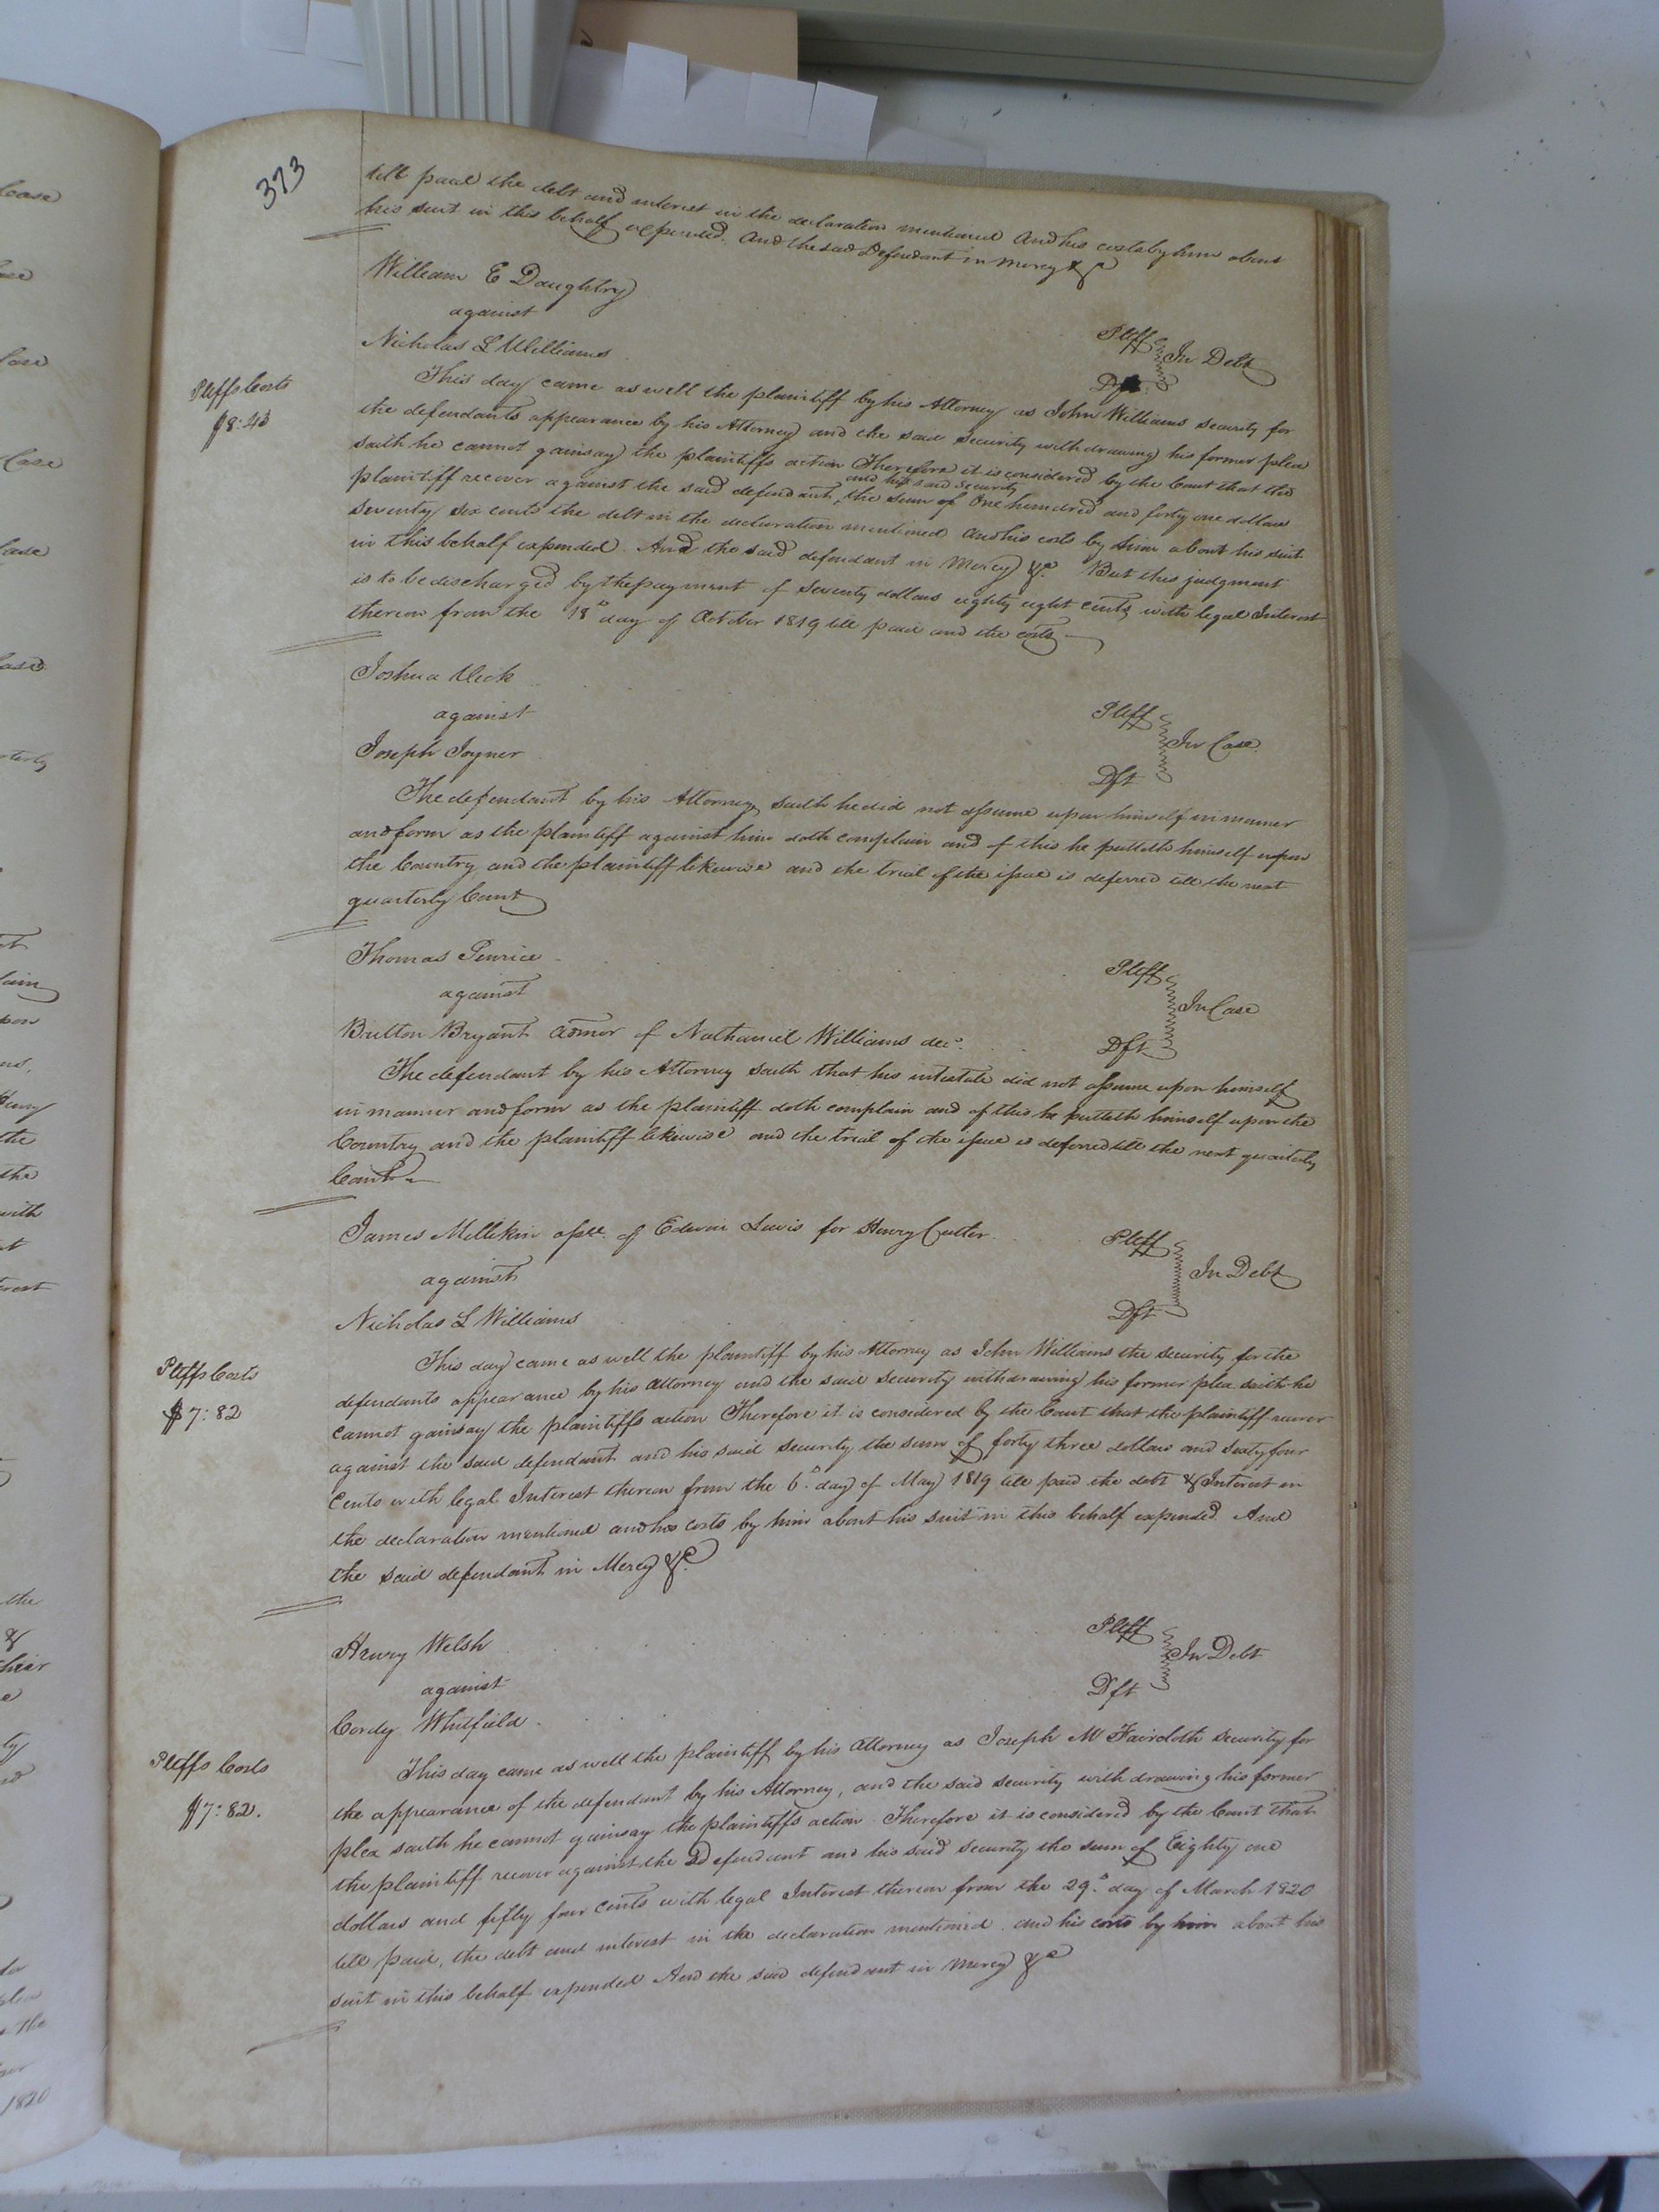 373
till paid the debt and interest in the declaration mentioned And his costs by him about
his suit in this behalf expended. And the said Defendant in mercy &c
William E Daughtry Pltff
against In Debt
Nicholas L Williams Dft
This day came as well the plaintiff by his Attorney as John Williams security for
Pltffs Costs
$8:43
the defendants appearance by his Attorney and the said security withdrawing his former plea
saith he cannot gainsay the plaintiffs action Therefore it is considered by the Court that the
and his said security
plaintiff recover against the said defendant the sum of One hundred and forty one dollars
seventy six cents the debt in the declaration mentioned and his costs by him about his suit
in this behalf expended. And the said defendant in Mercy &c. But this judgment
is to be discharged by the payment of seventy dollars eighty eight cents with legal Interest
thereon from the 18th day of October 1819 till paid and the costs
Joshua Vick Pltff
against In Case
Joseph Joyner Dft
The defendant by his Attorney saith he did not assume upon himself in manner
and form as the plaintiff against him doth complain and of this he putteth himself upon
the Country and the plaintiff likewise and the trial of the issue is deferred till the next
quarterly Court
Thomas Penrice Pltff
against In Case
Britton Bryant admor of Nathaniel Williams decd. Dft
The defendant by his Attorney saith that his intestate did not assume upon himself
in manner and form as the plaintiff doth complain and of this he putteth himself upon the
Country and the plaintiff likewise and the trial of the issue is deferred till the next quarterly
Court
James Millikin assee. of Edwin Lewis for Henry Cutler Pltff
against In Debt
Nicholas L Williams Dft
This day came as well the plaintiff by his Attorney as John Williams the security for the
Pltffs Costs
$7:82
defendants appearance by his Attorney and the said security withdrawing his former plea saith he
cannot gainsay the plaintiffs action Therefore it is considered by the Court that the plaintiff recover
against the said defendant and his said security the sum of forty three dollars and sixty four
Cents with legal Interest thereon from the 6th day of May 1819 till paid the debt & Interest in
the declaration mentioned and his costs by him about his suit in this behalf expended. And
the said defendant in Mercy &c.
Henry Welsh Pltff
against In Debt
Cordy Whitfield Dft
This day came as well the plaintiff by his Attorney as Joseph W Faircloth security for
Pltffs Costs
$7:82.
the appearance of the defendant by his Attorney, and the said security withdrawing his former
plea saith he cannot gainsay the plaintiffs action. Therefore it is considered by the Court that
the plaintiff recover against the Defendant and his said security the sum of Eighty one
dollars and fifty four cents with legal Interest thereon from the 29th day of March 1820
till paid, the debt and interest in the declaration mentioned. and his costs by him about his
suit in this behalf expended And the said defendant in mercy &c